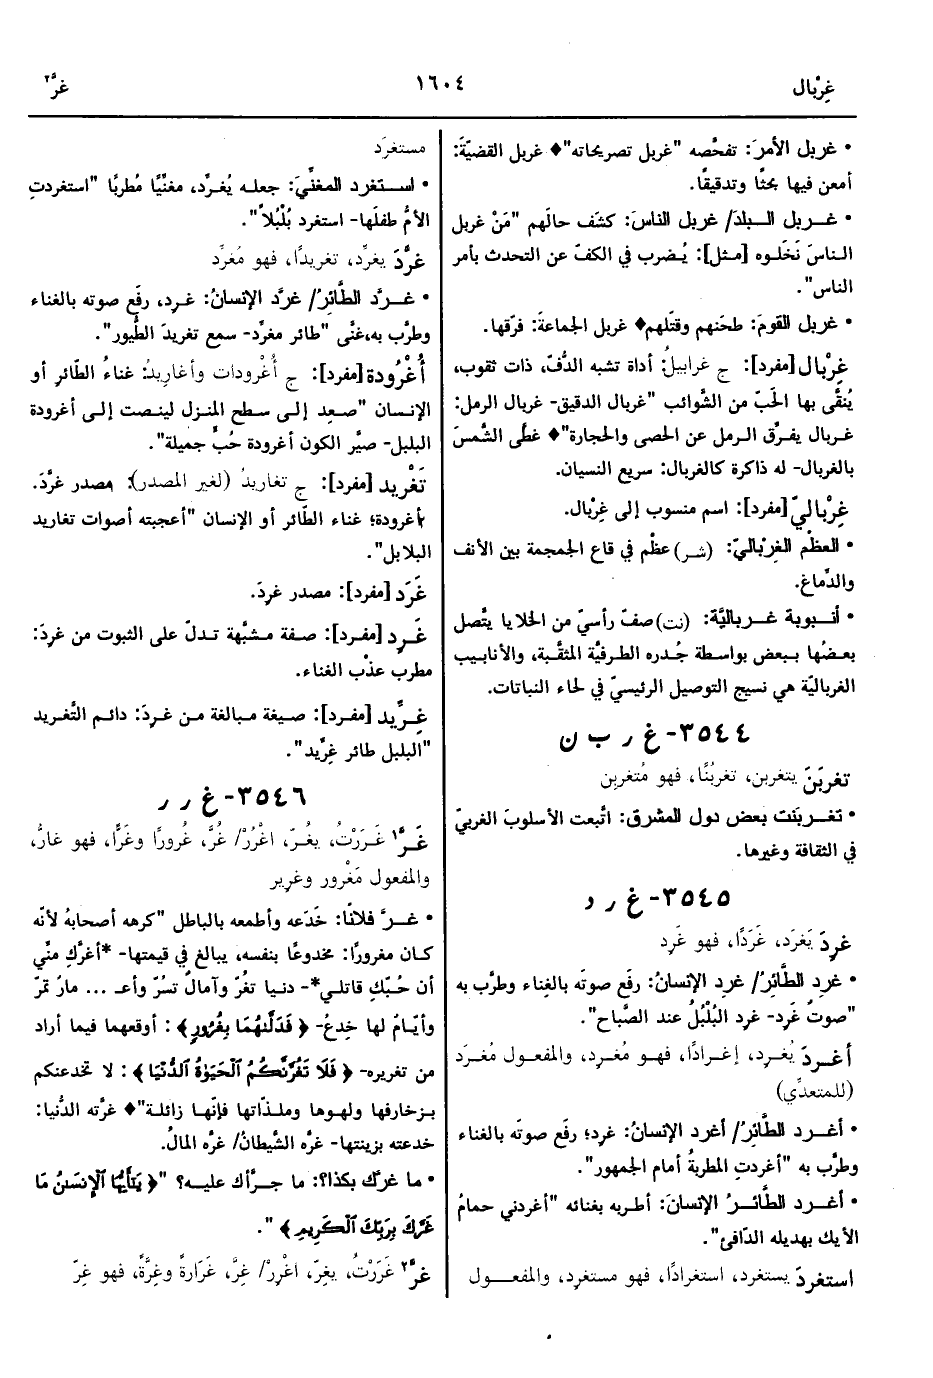 غِرْبال
١٦٠٤
غرَّ٢
• غربل الأمرَ: تفحَّصه "غربل تصريحاته"♦ غربل القضيّةَ:
أمعن فيها بحثًا وتدقيقًا.
• غربل البلدَ/ غربل الناسَ: كشَف حالَهم "مَنْ غربل
الناسَ نَخَلوه [مثل]: يُضرب في الكفّ عن التحدث بأمر
الناس".
• غربل القومَ: طحَنهم وقتَلهم♦ غربل الجماعةَ: فرّقها.
غِرْبال [مفرد]: ج غرابيلُ: أداة تشبه الدُّفّ، ذات ثقوب،
يُنقَّى بها الحَبّ من الشَّوائب "غربال الدقيق- غربال الرمل:
غربال يفرِّق الرمل عن الحصى والحجارة"♦ غطَّى الشَّمسَ
بالغربال- له ذاكرة كالغربال: سريع النسيان.
غِرْباليّ [مفرد]: اسم منسوب إلى غِرْبال.
• العظْم الغِرْباليّ: (شر) عظْم في قاع الجمجمة بين الأنف
والدِّماغ.
• أنبوبة غرباليَّة: (نت) صفّ رأسيّ من الخلايا يتَّصل
بعضُها ببعض بواسطة جُدره الطرفيَّة المثقَّبة، والأنابيب
الغرباليّة هي نسيج التوصيل الرئيسيّ في لحاء النباتات.
٣٥٤٤- غ ر ب ن
تغربَنَ يتغربن، تغربُنًا، فهو مُتغربِن
• تغربنت بعض دول المشرق: اتَّبعت الأسلوبَ الغربيّ
في الثقافة وغيرها.
٣٥٤٥- غ ر د
غرِدَ يَغرَد، غَرَدًا، فهو غَرِد
• غرِد الطَّائرُ/ غرِد الإنسانُ: رفَع صوتَه بالغِناء وطرَّب به
"صوتٌ غَرِد- غرِد البُلْبُلُ عند الصَّباح".
أغردَ يُغرِد، إغرادًا، فهو مُغرِد، والمفعول مُغرَد
(للمتعدِّي)
• أغرد الطَّائرُ/ أغرد الإنسانُ: غرِد؛ رفَع صوتَه بالغناء
وطرَّب به "أغردتِ المطربةُ أمام الجمهور".
• أغرد الطَّائرُ الإنسانَ: أطربه بغنائه "أغردني حمامُ
الأيك بهديله الدّافئ".
استغردَ يستغرد، استغرادًا، فهو مستغرِد، والمفعول
مستغرَد
• استغرد المغنِّيَ: جعله يُغرِّد، مغنِّيًا مُطربًا "استغردتِ
الأمُّ طفلَها- استغرد بُلْبُلاً".
غرَّدَ يغرِّد، تغريدًا، فهو مُغرِّد
• غرَّد الطَّائرُ/ غرَّد الإنسانُ: غرِد، رفَع صوته بالغناء
وطرَّب به، غنَّى "طائر مغرِّد- سمع تغريدَ الطُّيور".
أُغْرُودة [مفرد]: ج أُغْرودات وأغاريدُ: غناءُ الطّائر أو
الإنسان "صعِد إلى سطح المنزل لينصت إلى أغرودة
البلبل- صيَّر الكون أغرودة حُبٍّ جميلة".
تَغْريد [مفرد]: ج تغاريدُ (لغير المصدر): مصدر غرَّدَ.
٢أغرودة؛ غناء الطّائر أو الإنسان "أعجبته أصوات تغاريد
البلابل".
غَرَد [مفرد]: مصدر غرِدَ.
غَرِد [مفرد]: صفة مشبَّهة تدلّ على الثبوت من غرِدَ:
مطرب عذْب الغناء.
غِرِّيد [مفرد]: صيغة مبالغة من غرِدَ: دائم التَّغريد
"البلبل طائر غِرِّيد".
٣٥٤٦- غ ر ر
غَرَّ١ غَرَرْتُ، يغُرّ، اغْرُرْ/ غُرَّ، غُرورًا وغَرًّا، فهو غارٌّ،
والمفعول مَغْرور وغرير
• غرَّ فلانًا: خَدَعه وأطمعه بالباطل "كرهه أصحابهُ لأنّه
كان مغرورًا: مخدوعًا بنفسه، يبالغ في قيمتها- *أغرَّكِ منِّي
أن حُبّكِ قاتلي*- دنيا تغُرّ وآمالٌ تسُرّ وأعـ ... مارٌ تمرّ
وأيّامٌ لها خِدعُ- ﴿ فَدَلَّىٰهُمَا بِغُرُورٍ ﴾: أوقعهما فيما أراد
من تغريره- ﴿ فَلَا تَغُرَّنَّكُمُ ٱلْحَيَوٰةُ ٱلدُّنْيَا ﴾: لا تخدعنكم
بزخارفها ولهوها وملذّاتها فإنّها زائلة"♦ غرَّته الدُّنيا:
خدعته بزينتها- غرَّه الشَّيطانُ/ غرَّه المالُ.
• ما غرَّك بكذا؟: ما جرَّأك عليه؟ "﴿ يَٰٓأَيُّهَا ٱلْإِنسَٰنُ مَا
غَرَّكَ بِرَبِّكَ ٱلْكَرِيمِ ﴾ ".
غرَّ٢ غَرَرْتُ، يغِرّ، اغْرِرْ/ غِرَّ، غَرَارةً وغِرَّةً، فهو غِرّ